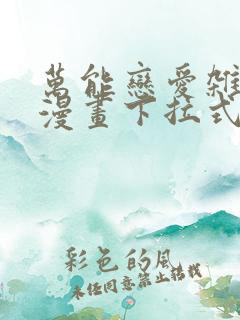 萬能戀愛雜
漫畫下拉式
彩色的風
未經同意禁止轉載